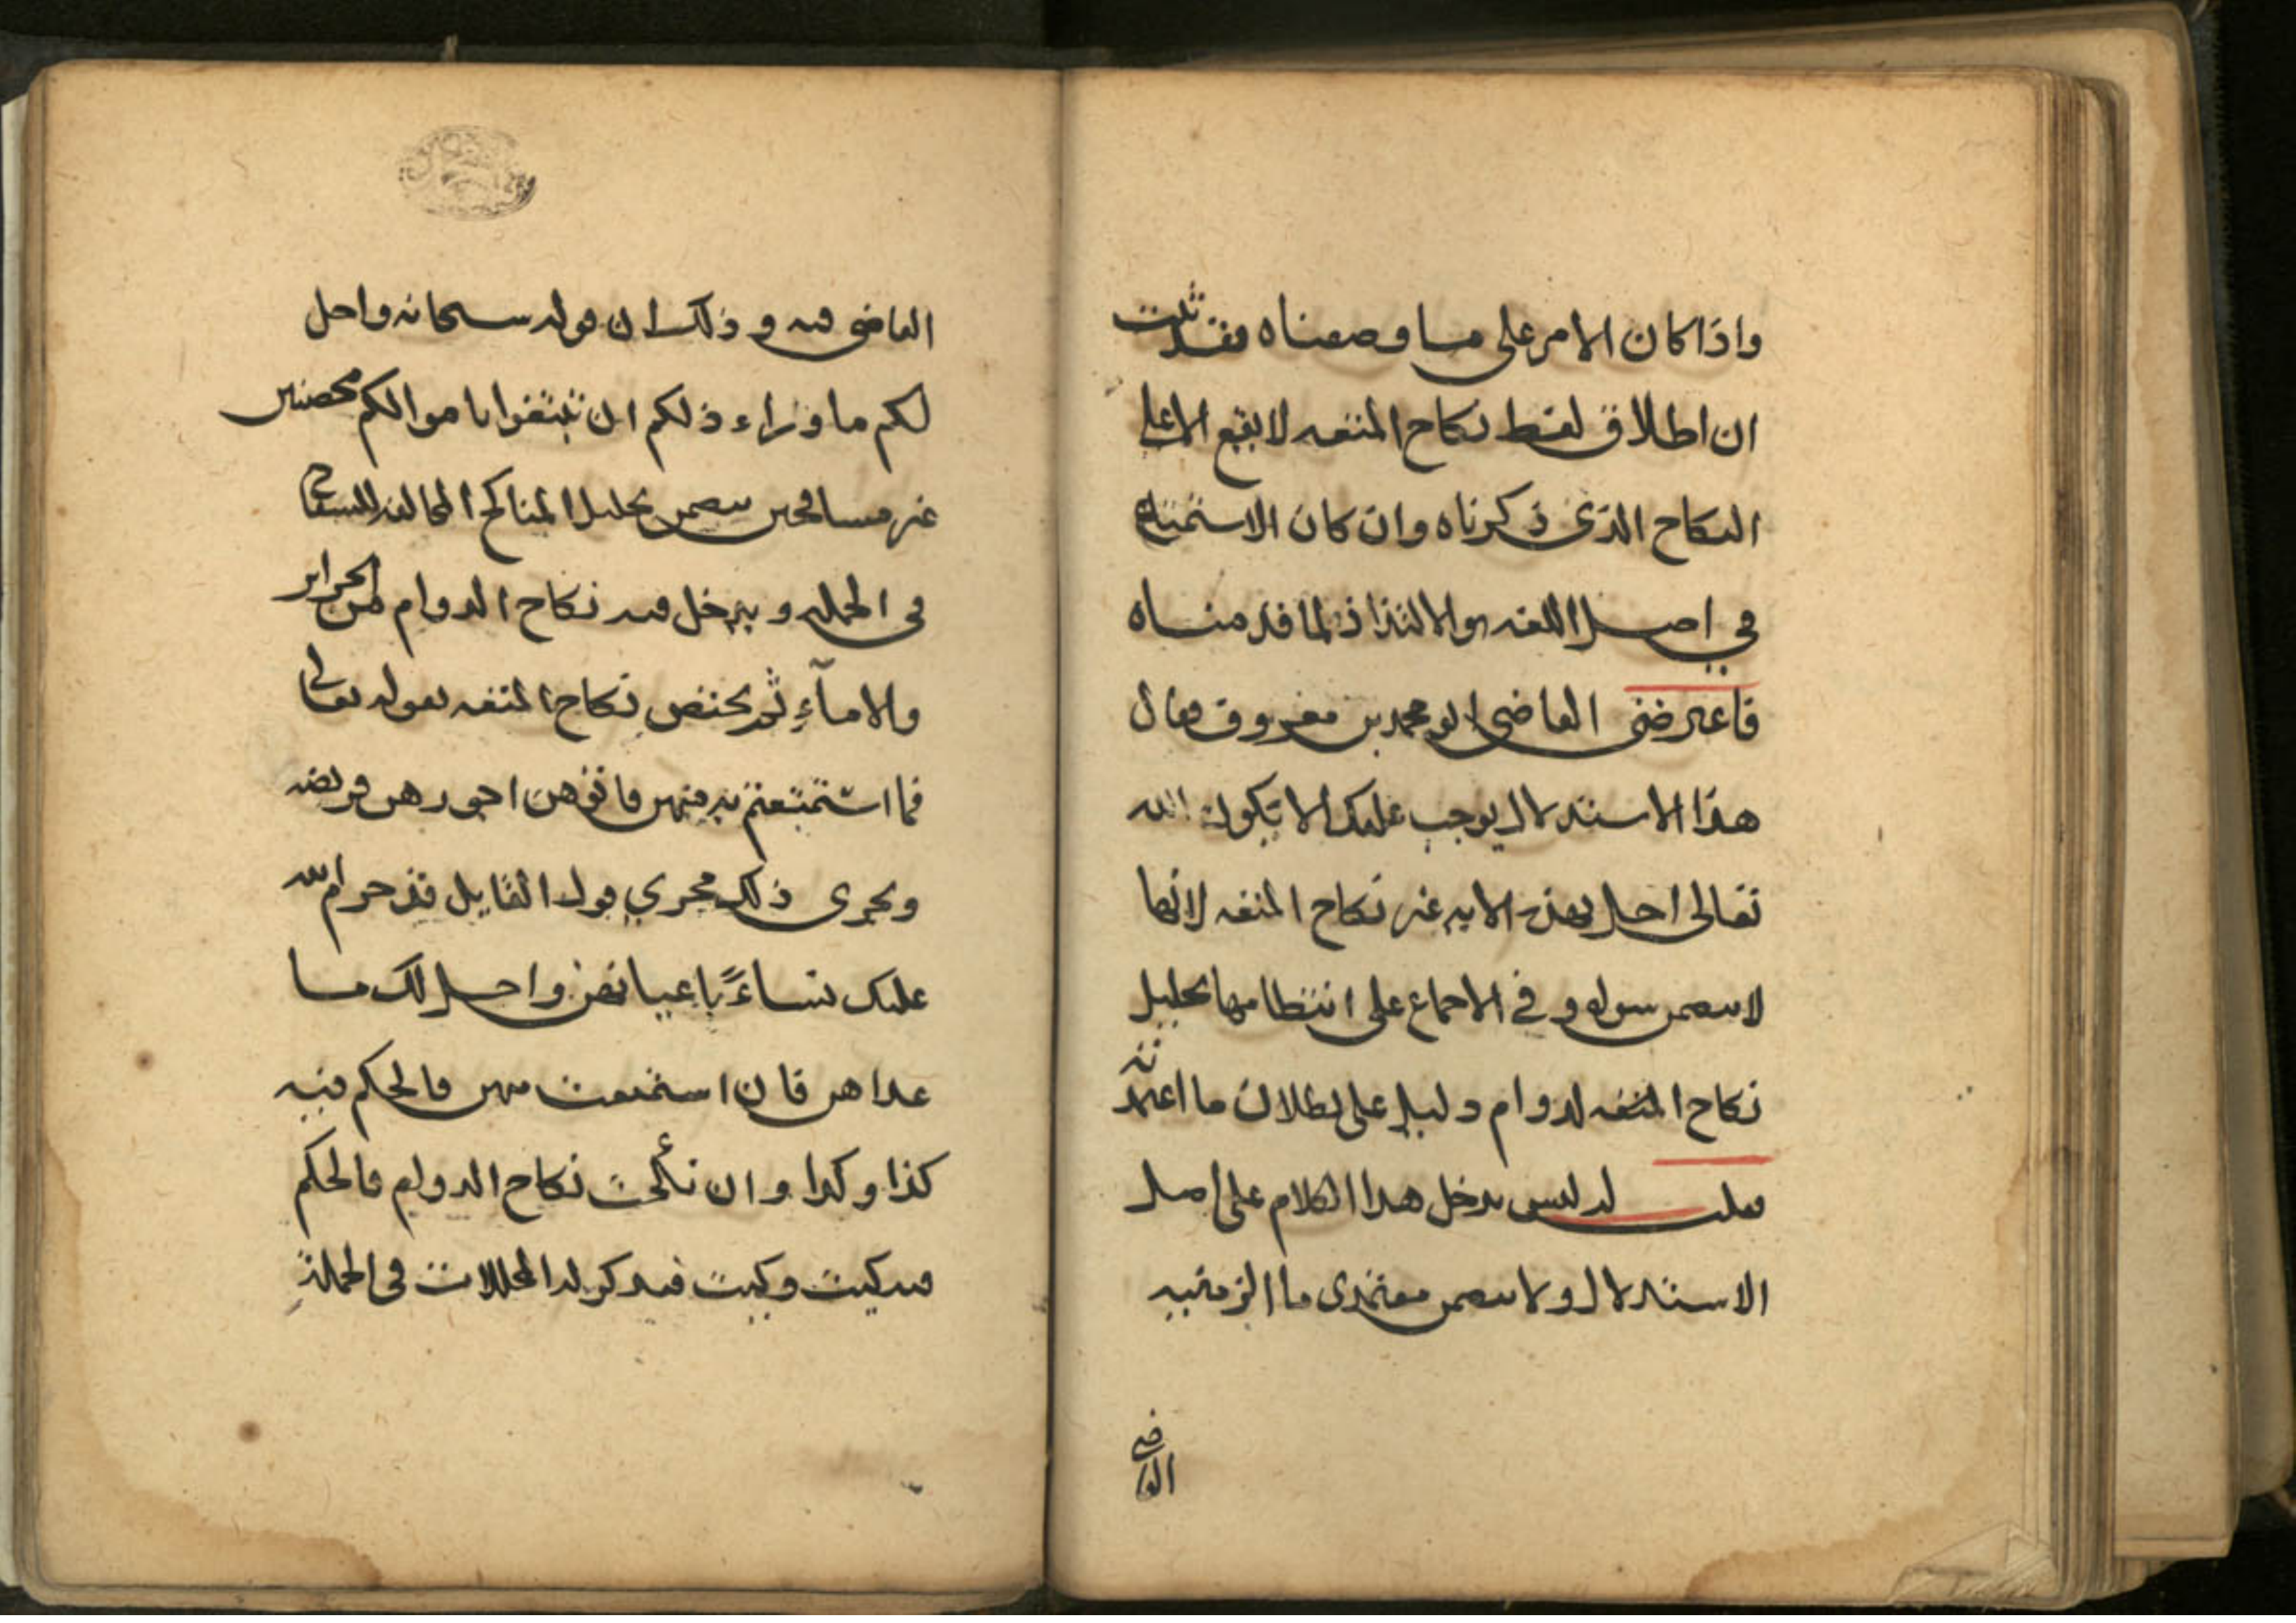 واذا كان الامر على ما وصفناه فقد ثبت
ان اطلاق لفظ نكاح المتعه لا يقع الا على
النكاح الذى ذكرناه وان كان الاستمتاع
في اصل اللغه هو الالتذاذ لما قدمناه
فاعترضنى القاضى ابو محمد بن معروف فقال
هذا الاستدلال يوجب عليك الا يكون الله
تعالى احل بهذه الايه غير نكاح المتعه لانها
لا تتضمن سواه و في الاجماع على انتظامها تحليل
نكاح المتعه لدوام دليل على بطلان ما اعتمدته
فقلت له ليس يدخل هذا الكلام على اصل
الاستدلال ولا يتضمن معتمدى ما الزمنيه
القاضى
القاضى فيه و ذلك ان قوله سبحانه واحل
لكم ما وراء ذلكم ان تبتغوا باموالكم محصنين
غير مسافحين يتضمن تحليل المناكح المخالفه للسفاح
فى الجمله و يدخل فيه نكاح الدوام من الحراير
والامآء ثم يختص نكاح المتعه بقوله تعالى
فما استمتعتم به منهن فاتوهن اجورهن فريضه
ويجرى ذلك مجري قول القايل قد حرم الله
عليك نساءً باعيانهن و احل لك ما
عداهن فان استمتعت منهن فالحكم فيه
كذا وكذا و ان نكحت نكاح الدوام فالحكم
فيه كيت وكيت فيذكر له المحللات فى الجملة